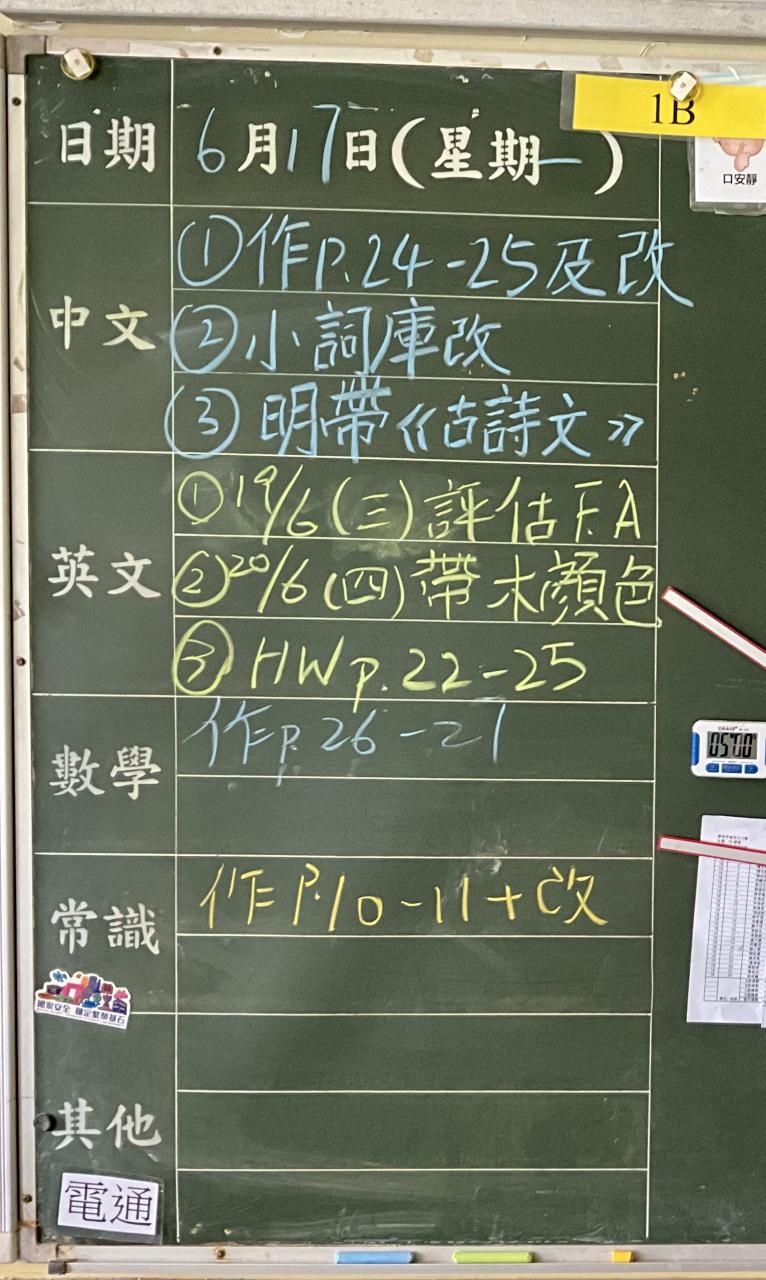 1B
日期 6月17日(星期一)
口安靜
中文 ①作P.24-25及改
②小詞庫改
③明帶《古詩文》
英文 ①19/6(三)評估F.A
②20/6(四)帶木顏色
③HW p.22-25
數學 作p.26-27
05:00
常識 作P.10-11+改
國家安全
其他
電通